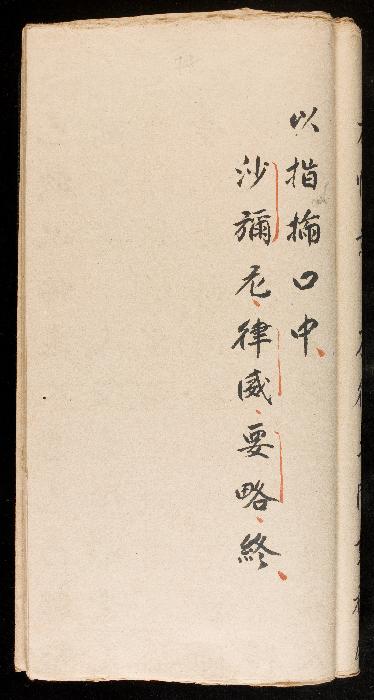 以指掏口中
沙彌尼律威要略終